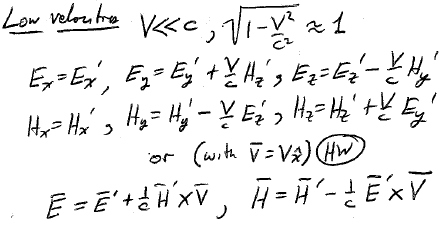 Low velocities V≪c, √(1-V²/c²) ≈ 1
Eₓ=Eₓ', E_y=E_y'+V/c H_z', E_z=E_z'-V/c H_y'
Hₓ=Hₓ', H_y=H_y'-V/c E_z', H_z=H_z'+V/c E_y'
or (with V̄=Vx̂) HW
Ē=Ē'+1/c H̄'×V̄, H̄=H̄'-1/c Ē'×V̄